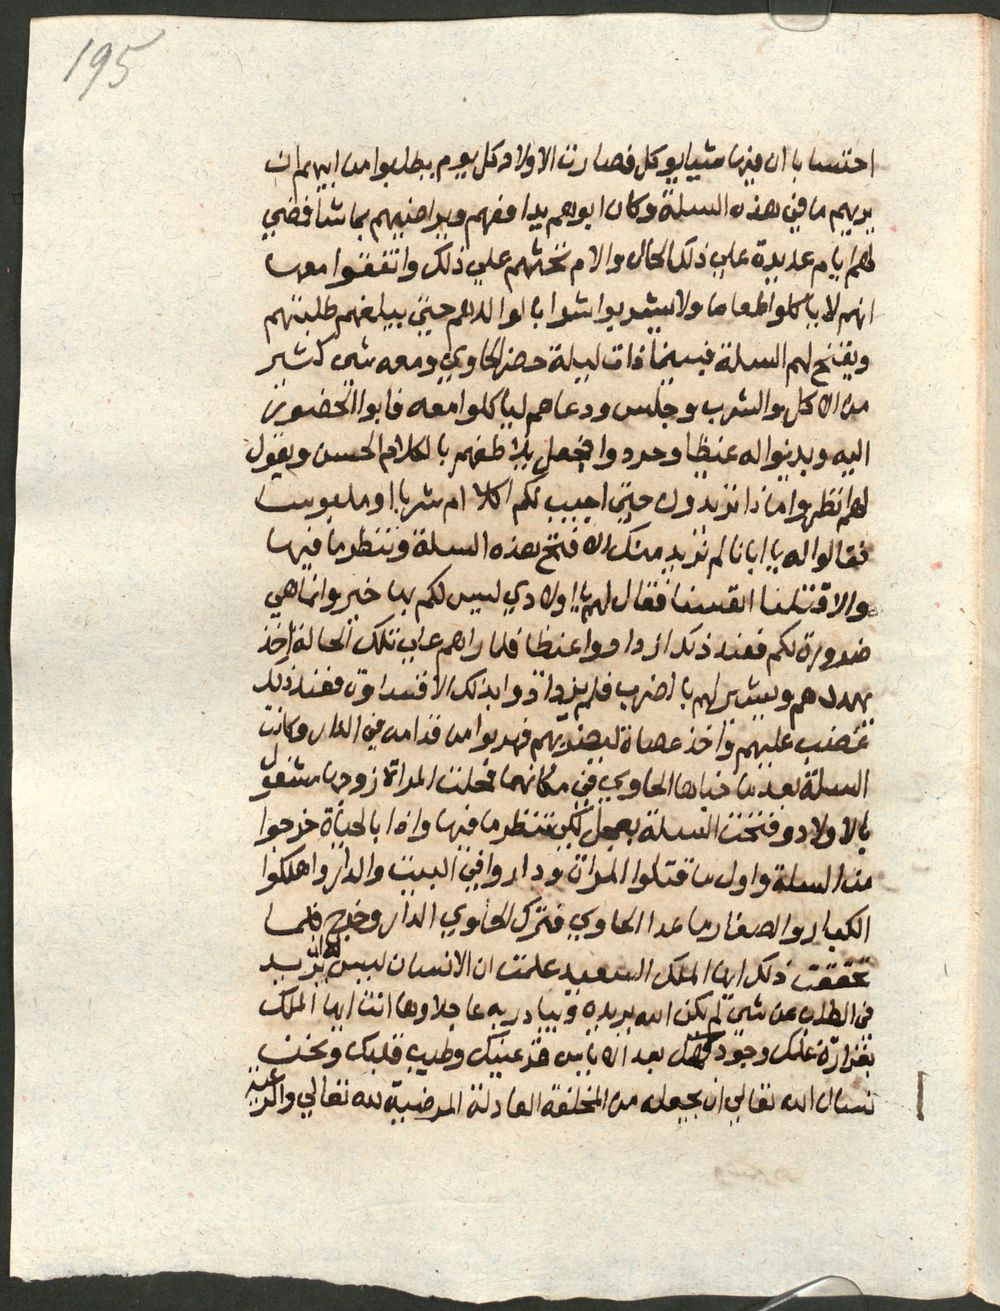 195
احتسابا ان فيها شيا يوكل فصارت الاولاد كل يوم يطلبوا من ابيهم ان
يريهم ما في هذه السلة وكان ابوهم يدافعهم ويراضيهم بما شا فضي
لهم ايام عديدة علي ذلك الحال والام تحثهم علي ذلك واتفقوا معها
انهم لا ياكلوا طعاما ولا يشربوا شرابا لوالدهم حتي يبلغهم طلبتهم
ويفتح لهم السلة فبينما ذات ليلة حضر الحاوي ومعه شي كثير
من الاكل والشرب وجلس ودعاهم لياكلوا معه فابوا الحضور
اليه ويدنوا له غيظا وحردوا فجعل يلاطفهم بالكلام الحسن ويقول
لهم انظروا ماذا تريدون حتي اجيب لكم اكلا ام شربا او ملبوسا
فقالوا له يا ابانا لم نريد منك الا فتح هذه السلة وننظر ما فيها
والا قتلنا انفسنا فقال لهم يا اولادي ليس لكم بها خير وانما هي
ضرورة لكم فعند ذلك ازدادوا غيظا فلما راهم علي تلك الحالة اخذ
يهددهم ويشير لهم بالضرب فلم يزدادوا بذلك الا قساوة فعند ذلك
غضب عليهم واخذ عصاة ليضربهم فهربوا من قدامه في الدار وكانت
السلة بعد ما خباها الحاوي في مكانها فخلت المراة زوجها مشغول
بالاولاد وفتحت السلة بعجل لكي تنظر ما فيها واذا بالحياة خرجوا
من السلة واول ما قتلوا المراة وداروا في البيت والدار واهلكوا
الكبار والصغار ما عدا الحاوي فترك الحاوي الدار وخرج فلما
تحققت ذلك ايها الملك السعيد علمت ان الانسان ليس له ان يريد
في الطلب عن شي لم يكن الله يريده ويبادر به عاجلا وها انت ايها الملك
بغزارة علمك وجودة فهمك بعد الاياس قر عينك وطيب قلبك ونحن
نسال الله تعالي ان يجعله من الخلفة العادلة المرضية لله تعالي والرعية